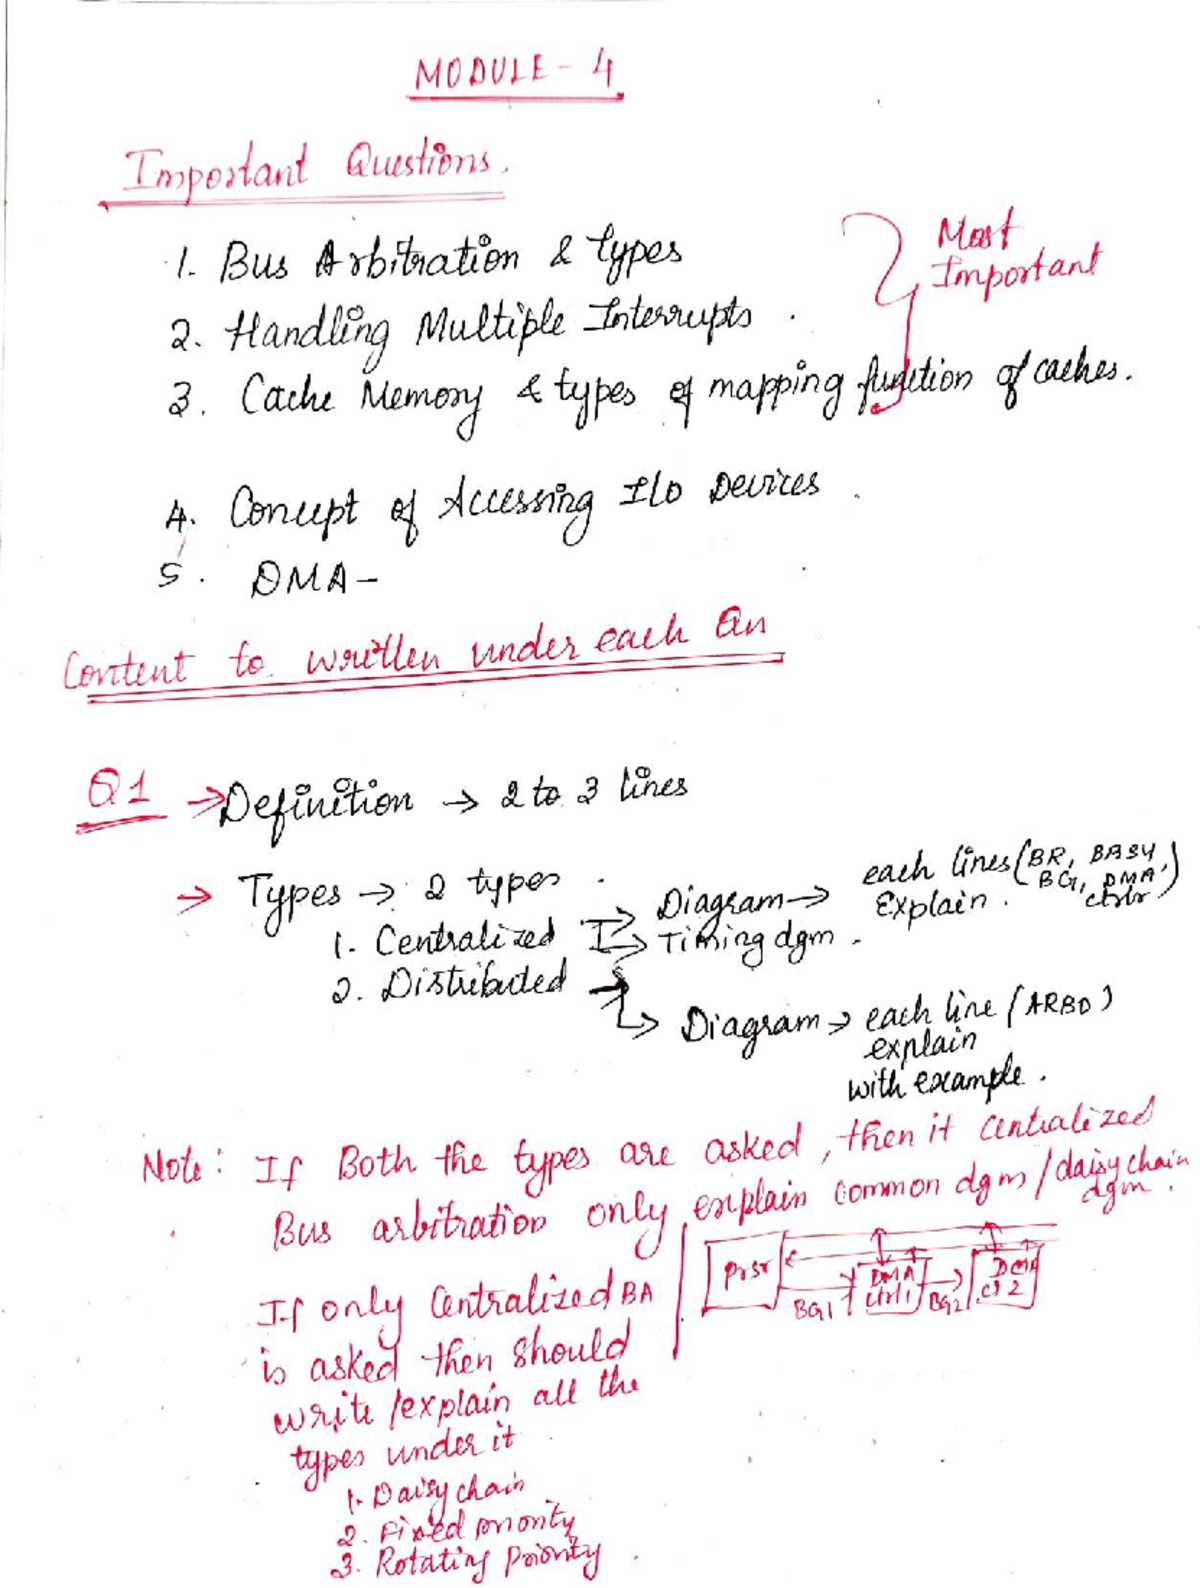 MODULE - 4
Important Questions.
1. Bus Arbitration & types
2. Handling Multiple Interrupts.
3. Cache Memory & types of mapping function of caches.
Most
Important
4. Concept of Accessing I/O Devices.
5. DMA -
Content to written under each Qn
Q1 → Definition → 2 to 3 lines
→ Types → 2 types.
1. Centralized → Diagram → each lines (BR, BBSY, BG1, DMA ctrlr) Explain.
→ Timing dgm.
2. Distributed
→ Diagram → each line (ARBD)
explain
with example.
Note: If Both the types are asked, then it centralized
Bus arbitration only explain common dgm / daisy chain
dgm.
Prsr
BG1
DMA
ctrl 1
BG2
DMA
ct 2
If only Centralized BA
is asked then should
write / explain all the
types under it
1. Daisy chain
2. Fixed priority
3. Rotating Priority.